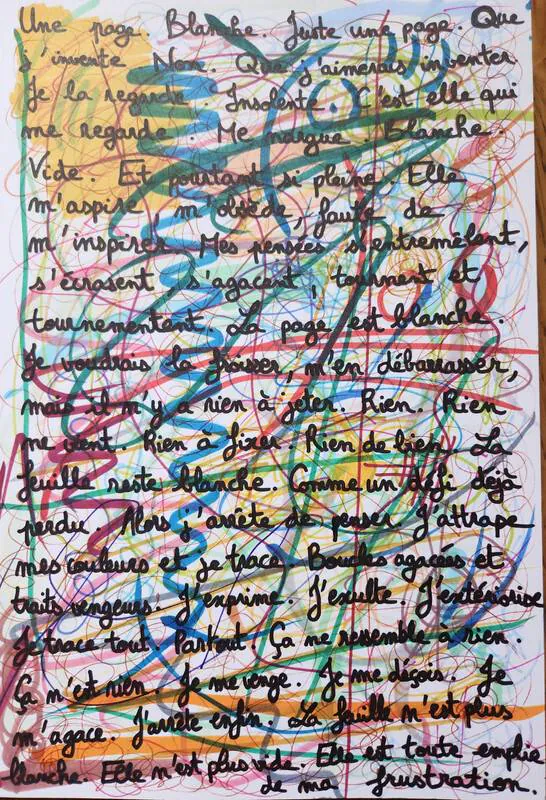 Une page. Blanche. Juste une page. Que
s'invente. Non. Que j'aimerais inventer.
Je la regarde. Insolente. C'est elle qui
me regarde. Me nargue. Blanche.
Vide. Et pourtant si pleine. Elle
m'aspire, m'obsède, faute de
m'inspirer. Mes pensées s'entremêlent,
s'écrasent, s'agacent, tournent et
tournementent. La page est blanche.
Je voudrais la froisser, m'en débarrasser,
mais il n'y a rien à jeter. Rien. Rien
ne vient. Rien à fixer. Rien de bien. La
feuille reste blanche. Comme un défi déjà
perdu. Alors j'arrête de penser. J'attrape
mes couleurs et je trace. Boucles agacées et
traits vengeurs. J'exprime. J'exulte. J'extériorise
Je trace tout. Partout. Ça ne ressemble à rien.
Ça n'est rien. Je me venge. Je me déçois. Je
m'agace. J'arrête enfin. La feuille n'est plus
blanche. Elle n'est plus vide. Elle est toute emplie
de ma frustration.